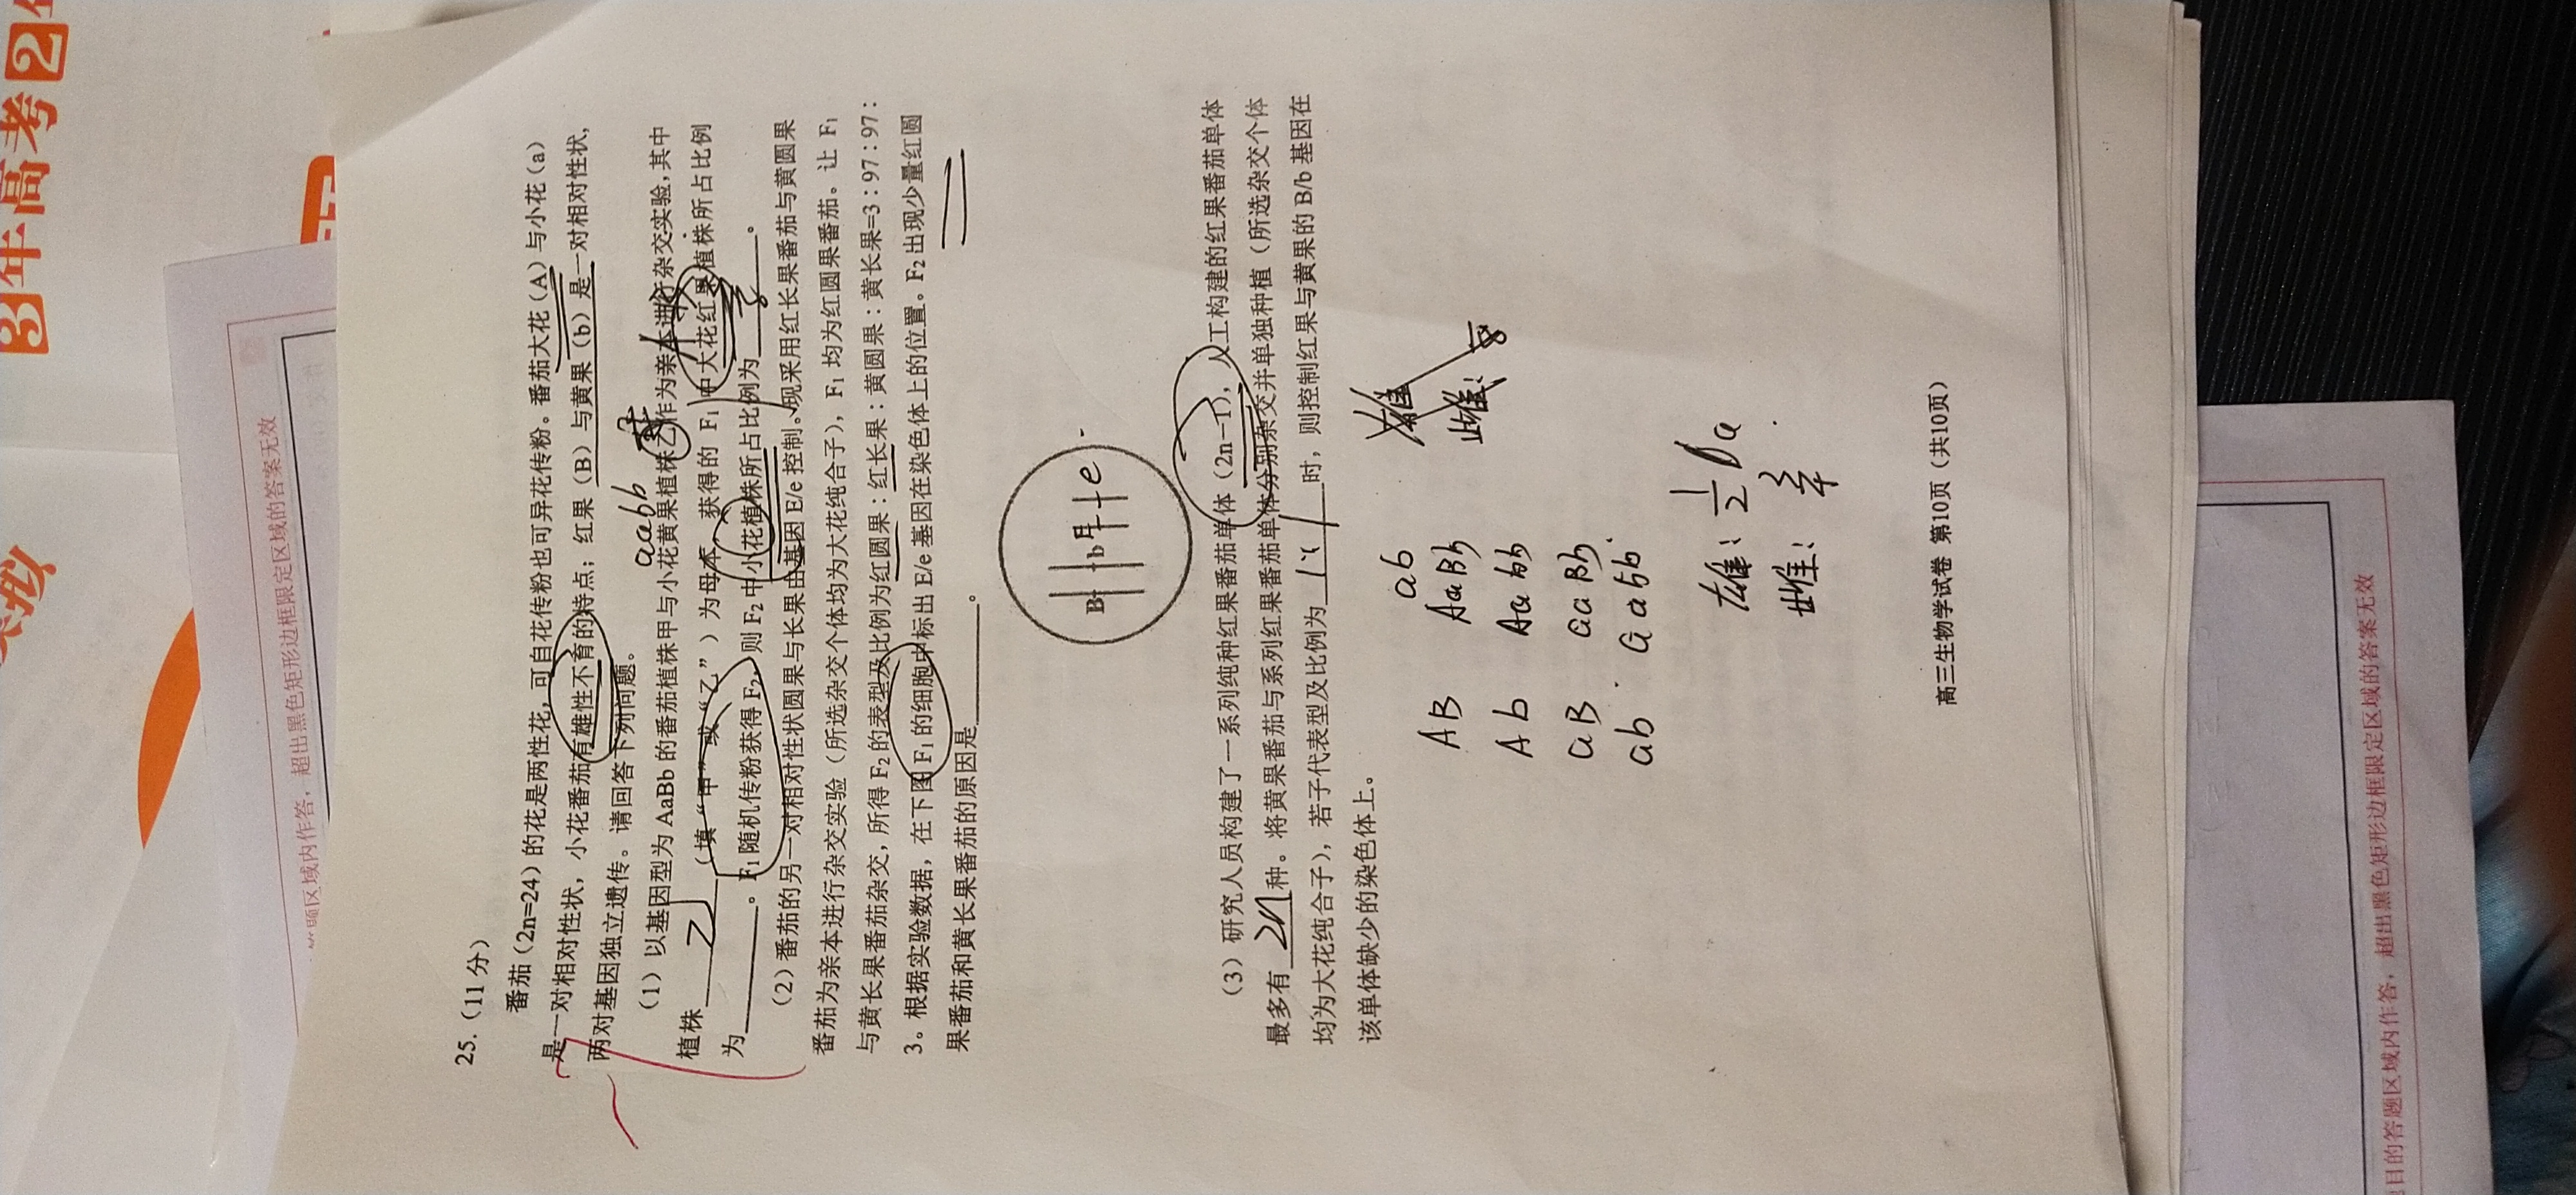 3年高考2
25.（11分）
番茄（2n=24）的花是两性花，可自花传粉也可异花传粉。番茄大花（A）与小花（a）
是一对相对性状，小花番茄有雄性不育的特点；红果（B）与黄果（b）是一对相对性状，
两对基因独立遗传。请回答下列问题。
aabb
（1）以基因型为 AaBb 的番茄植株甲与小花黄果植株乙作为亲本进行杂交实验，其中
植株 乙 （填“甲”或“乙”）为母本，获得的 F₁ 中大花红果植株所占比例
为 。F₁ 随机传粉获得 F₂，则 F₂ 中小花植株所占比例为 。
（2）番茄的另一对相对性状圆果与长果由基因 E/e 控制。现采用红长果番茄与黄圆果
番茄为亲本进行杂交实验（所选杂交个体均为大花纯合子），F₁ 均为红圆果番茄。让 F₁
与黄长果番茄杂交，所得 F₂ 的表型及比例为红圆果：红长果：黄圆果：黄长果=3：97：97：
3。根据实验数据，在下图 F₁ 的细胞中标出 E/e 基因在染色体上的位置。F₂ 出现少量红圆
果番茄和黄长果番茄的原因是 。
B b E e
（3）研究人员构建了一系列纯种红果番茄单体（2n−1），人工构建的红果番茄单体
最多有 2n 种。将黄果番茄与系列红果番茄单体分别杂交并单独种植（所选杂交个体
均为大花纯合子），若子代表型及比例为 1:1 时，则控制红果与黄果的 B/b 基因在
该单体缺少的染色体上。
ab
AB AaBb
Ab Aabb
aB aaBb
ab aabb
雄
雌：
雄：1/2 a
雌：3/4
高三生物学试卷 第10页（共10页）
超出黑色矩形边框限定区域的答案无效
目的答题区域内作答，超出黑色矩形边框限定区域的答案无效